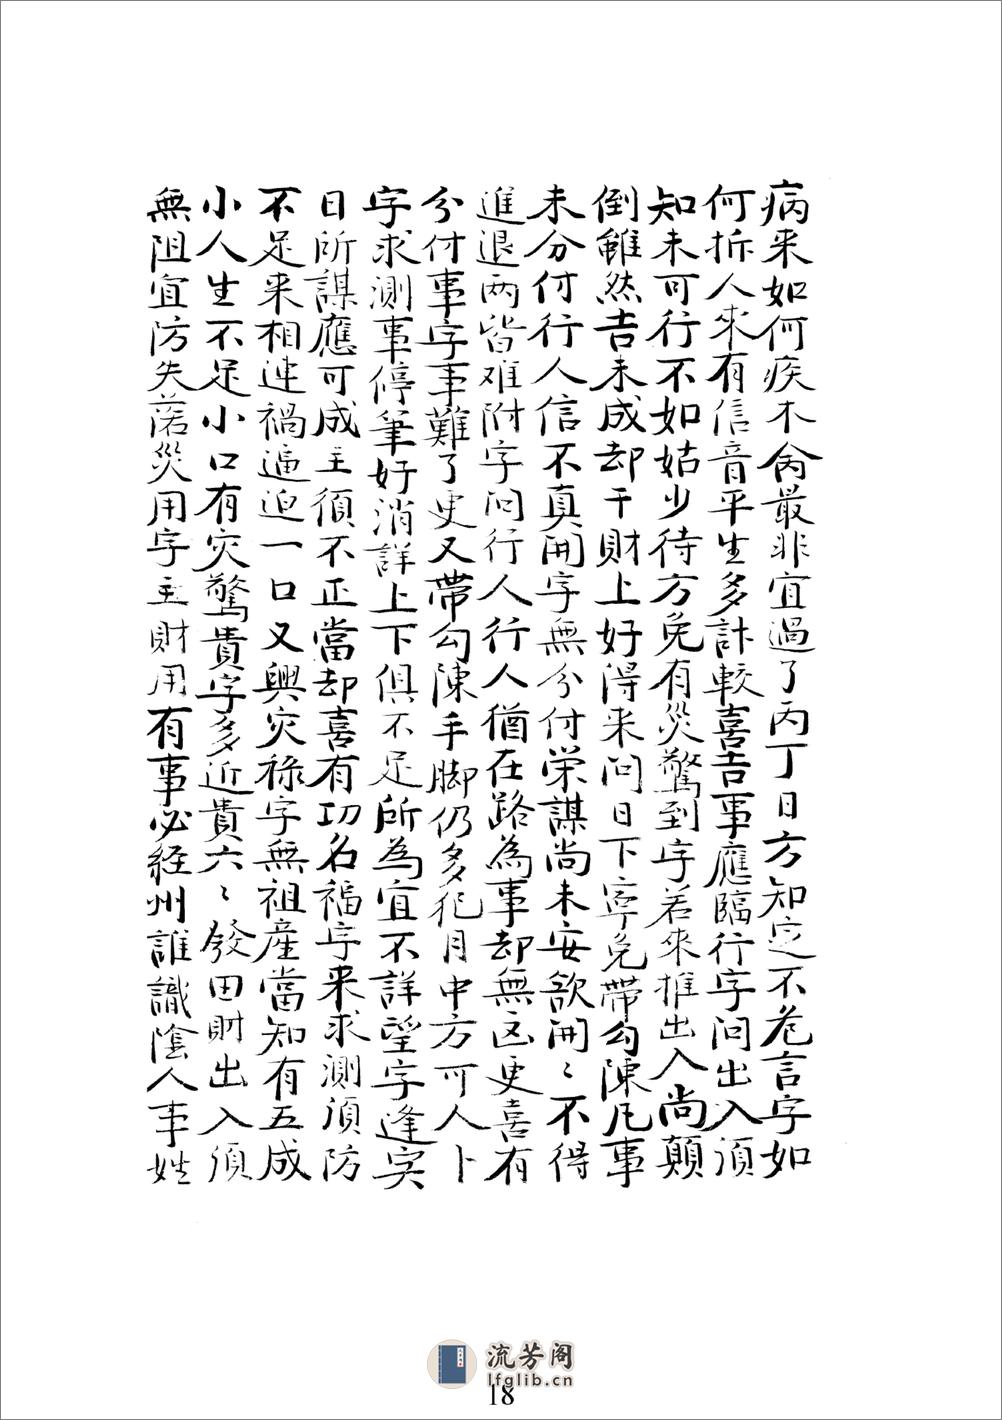 病来如何疾木禽最非宜過了丙丁日方知定不危言字如
何拆人來有信音平生多計較喜吉事應臨行字问出入須
知未可行不如姑少待方免有災驚到字若來推出入尚顛
倒雖然吉未成却干財上好得来问日下寧免带勾陳凡事
未分付行人信不真開字無分付榮謀尚未安欲開〻不得
進退两皆难附字问行人行人猶在路為事却無凶更喜有
分付事字事難了更又帶勾陳手脚仍多犯月中方可人卜
字求測事停筆好消詳上下俱不足所為宜不詳望字逢寅
日所謀應可成主須不正當却喜有功名福字来求測須防
不足来相連禍逼迫一口又興灾祿字無祖産當知有五成
小人生不足小口有灾驚貴字多近貴六〻發田財出入須
無阻宜防失落災用字主財用有事必經州誰識陰人事姓
流芳阁
lfglib.cn
18